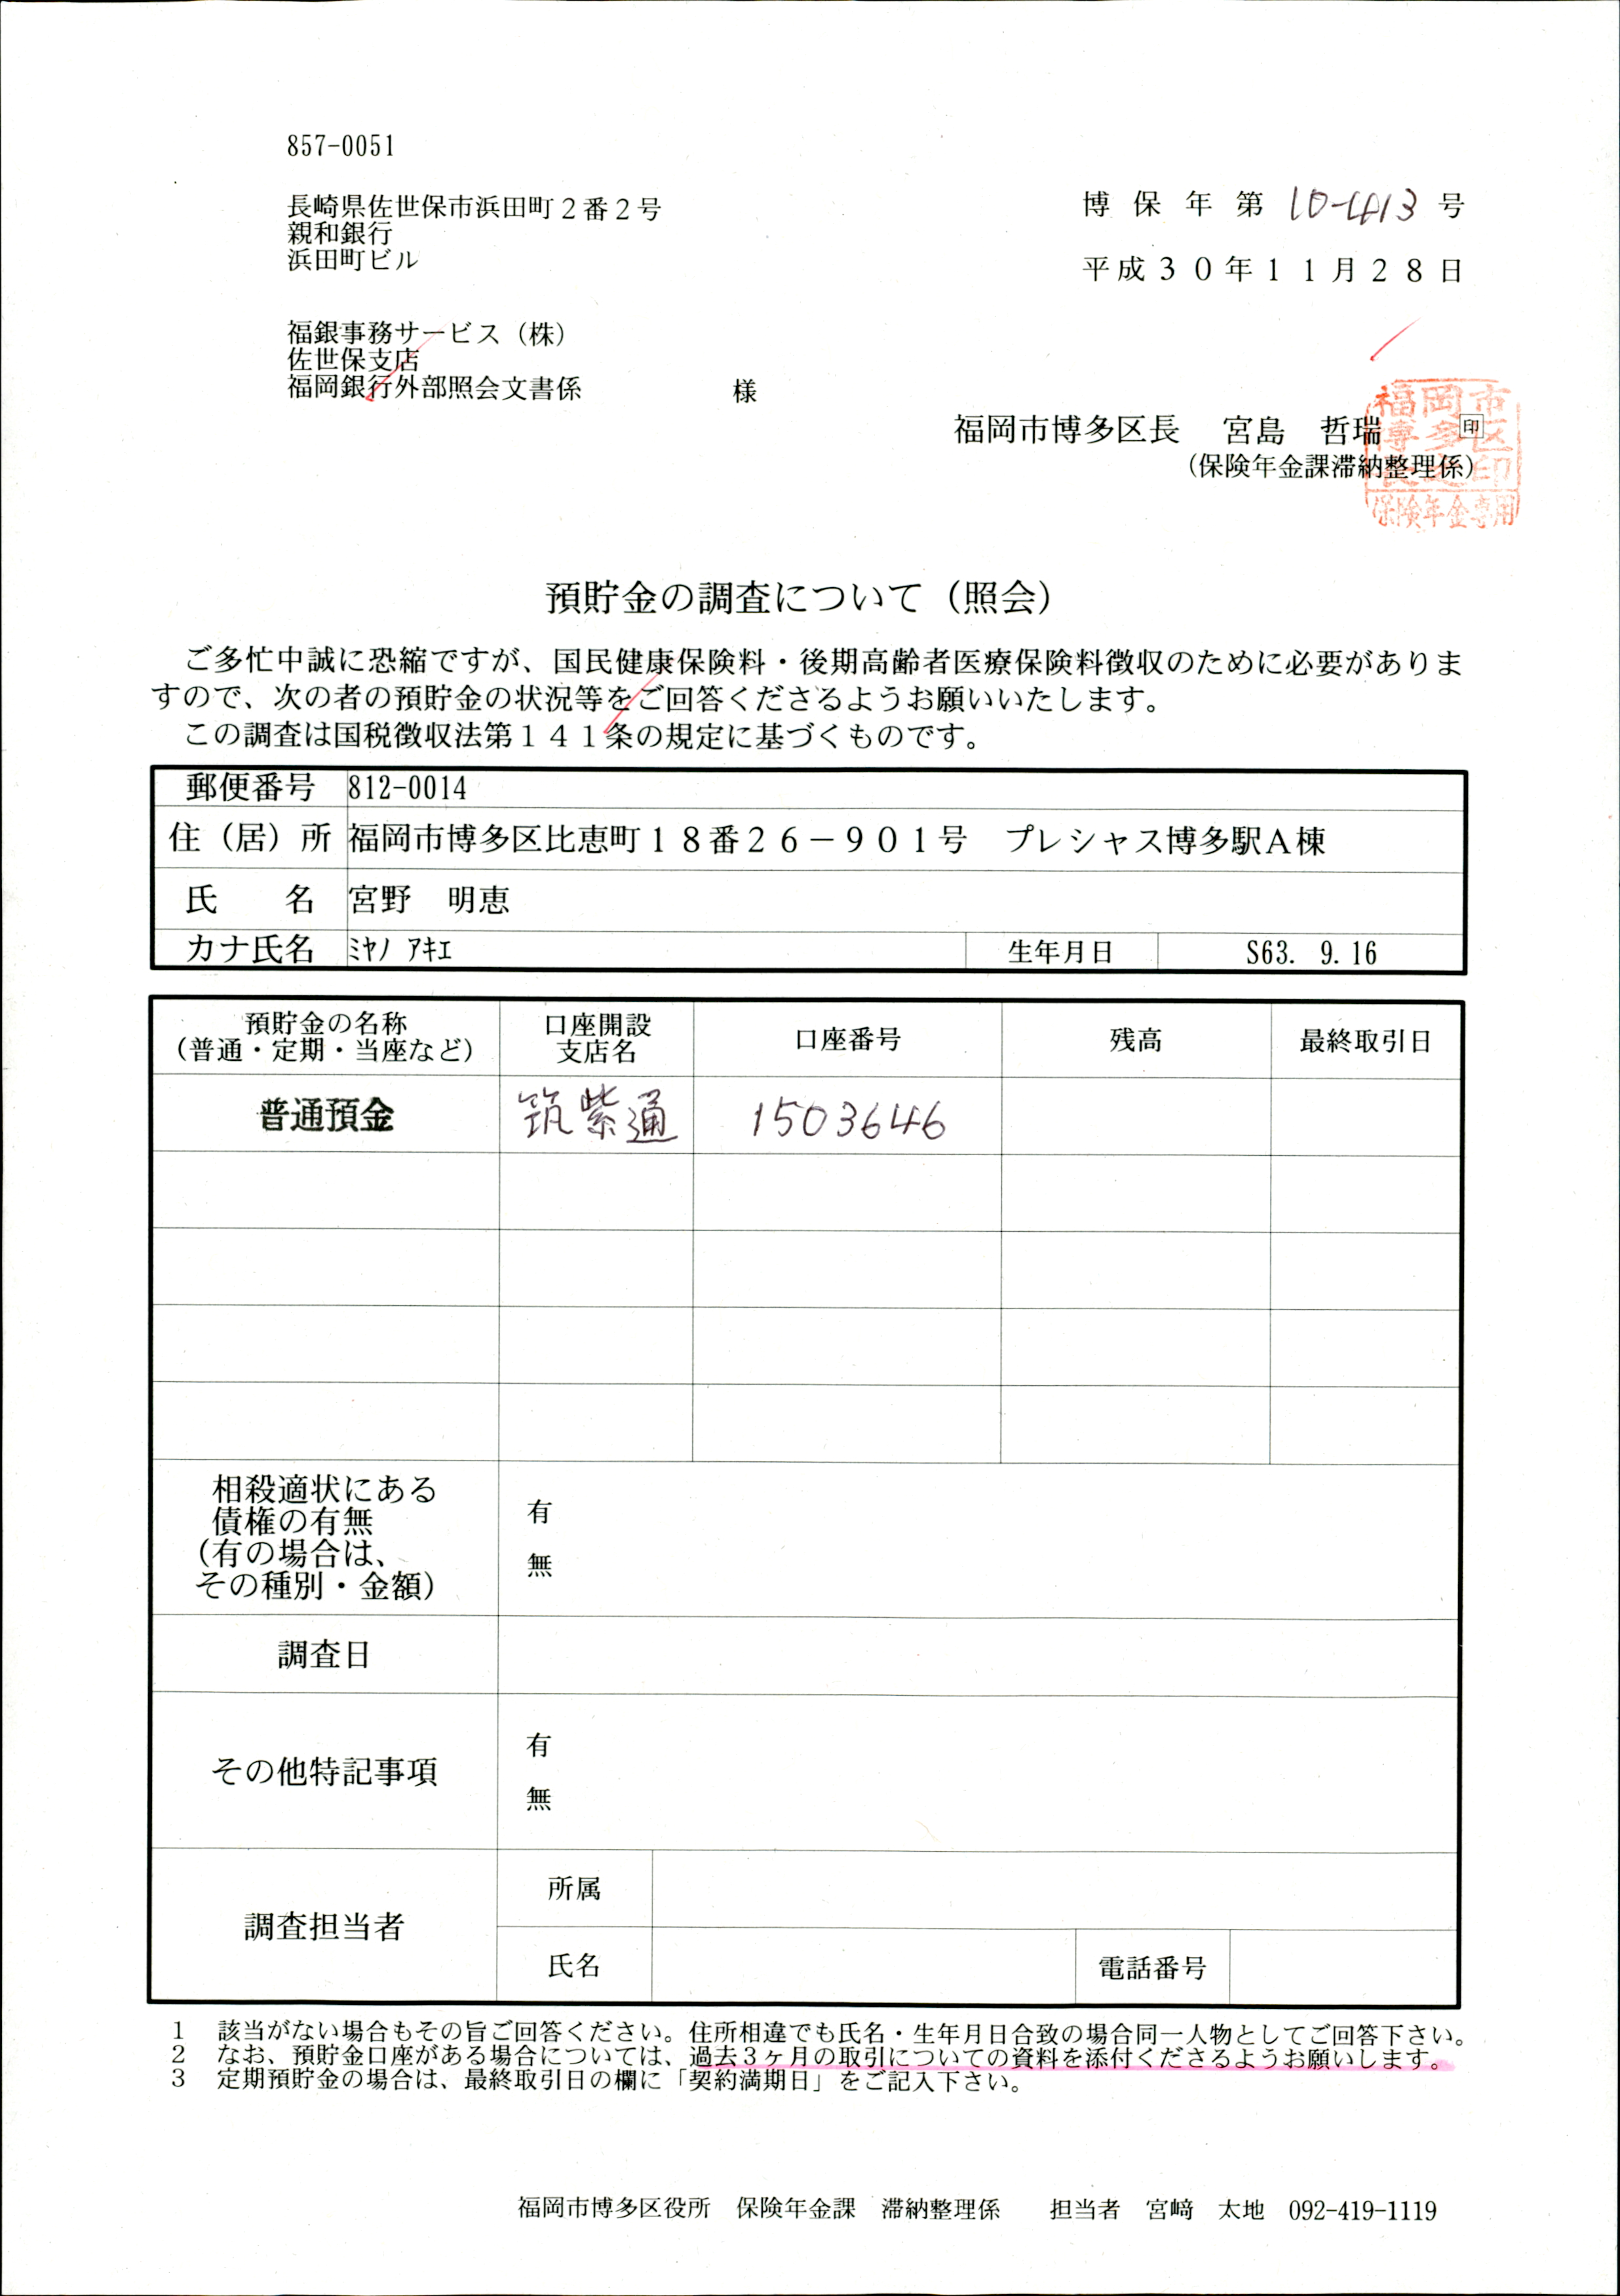 857-0051
長崎県佐世保市浜田町２番２号
親和銀行
浜田町ビル
博保年第10-4413号
平成３０年１１月２８日
福銀事務サービス（株）
佐世保支店
福岡銀行外部照会文書係　様
福岡市博多区長　宮島　哲瑞　印
（保険年金課滞納整理係）
福岡市
博多区
長之印
保険年金専用
預貯金の調査について（照会）
ご多忙中誠に恐縮ですが、国民健康保険料・後期高齢者医療保険料徴収のために必要がありま
すので、次の者の預貯金の状況等をご回答くださるようお願いいたします。
この調査は国税徴収法第１４１条の規定に基づくものです。
郵便番号　812-0014
住（居）所　福岡市博多区比恵町１８番２６－９０１号　プレシャス博多駅Ａ棟
氏　名　宮野　明恵
カナ氏名　ﾐﾔﾉ ｱｷｴ　生年月日　S63. 9.16
預貯金の名称
（普通・定期・当座など）
口座開設
支店名
口座番号
残高
最終取引日
普通預金　筑紫通　1503646
相殺適状にある
債権の有無
（有の場合は、
その種別・金額）
有
無
調査日
その他特記事項
有
無
調査担当者
所属
氏名
電話番号
1　該当がない場合もその旨ご回答ください。住所相違でも氏名・生年月日合致の場合同一人物としてご回答下さい。
2　なお、預貯金口座がある場合については、過去３ヶ月の取引についての資料を添付くださるようお願いします。
3　定期預貯金の場合は、最終取引日の欄に「契約満期日」をご記入下さい。
福岡市博多区役所　保険年金課　滞納整理係　担当者　宮﨑　太地　092-419-1119